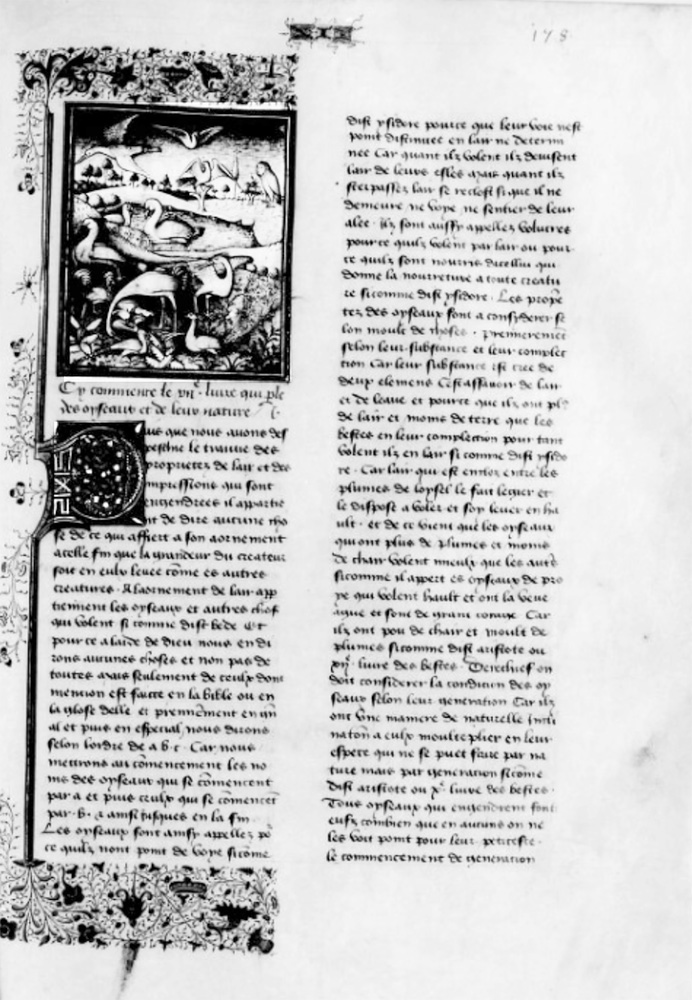 XII
178
Cy commence le xii.e livre qui ple
des oyseaux et de leur nature
Puis que nous avons des
pesche le traitie des
proprietez de lair et des
impressions qui sont
engendrees il appartie
nt de dire aucune cho
se de ce qui affiert a son aornement
a celle fin que la grandeur du createur
soit en eulx levee cōme es autres
creatures. A laornement de lair app
tiennent les oyseaux et autres choses
qui volent si comme dist bede. Et
pour ce a laide de dieu nous en di
rons aucunes choses et non pas de
toutes mais seulement de ceulx dont
mention est faicte en la bible ou en
la glose delle et premierement en gn̄
al et puis en especial nous dirons
selon lordre de a b c. Car nous
mettrons au cōmencement les no
ms des oyseaux qui se cōmencent
par a et puis ceulx qui se cōmencent
par b. a ainsi jusques en la fin.
Les oyseaux sont ainsy appellez po
ce quilz nont point de voye sicōme
dist ysidore pource que leur voie nest
point distinctee en lair ne determi
nee Car quant ilz volent ilz devisent
lair de leurs esles mais quant ilz
sont passez lair se reclost si que il ne
demeure ne voye ne sentier de leur
alee. Ilz sont aussy appellez volucres
pource quilz volent par lair ou pour
ce quilz sont nourris du ciel qui
donne la nourreture a toute creatu
re sicomme dist ysidore. Les propre
tez des oyseaux sont a considerer se
lon moult de choses. Premierement
selon leur substance et leur complec
tion Car leur substance est cree de
deux elemens Cest assavoir de lair
et de leaue et pource que ilz ont pl9
de lair et moins de terre que les
bestes en leur complection pour tant
volent ilz en lair si comme dist ysido
re. Car lair qui est enclos entre les
plumes de loysel le fait legier et
le dispose a voler et soy lever en ha
ult. et de ce vient que les oyseaux
qui ont plus de plumes et moins
de chair volent mieulx que les autres
sicomme il appert es oyseaux de pro
ye qui volent hault et ont la veue
ague et sont de grant corage Car
ilz ont pou de chair et moult de
plumes sicomme dist aristote ou
xii.e livre des bestes. Derechief on
doit considerer la condition des oy
seaux selon leur generation Car ilz
ont une maniere de naturelle incli
nation a eulx moulteplier en leur
espece qui ne se puet faire par na
ture mais par generation sicōme
dist aristote ou x.e livre des bestes.
Tous oyseaux qui engendrent font
eufz combien que en aucuns on ne
les voit point pour leur petitesse.
le commencement de generation